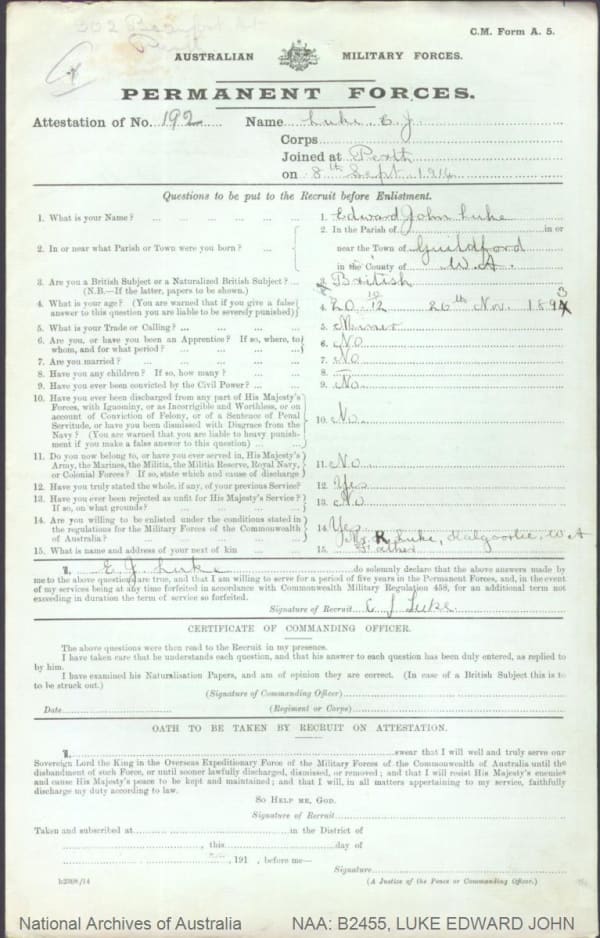 302 Beaufort St
Perth
C.M. Form A. 5.
AUSTRALIAN MILITARY FORCES.
PERMANENT FORCES.
Attestation of No. 192 Name Luke E J
Corps
Joined at Perth
on 8th Sept. 1914
Questions to be put to the Recruit before Enlistment.
1. What is your Name? ... 1. Edward John Luke
2. In or near what Parish or Town were you born? ... 2. In the Parish of in or
near the Town of Guildford
in the County of W.A.
3. Are you a British Subject or a Naturalized British Subject? ... 3. British
(N.B.—If the latter, papers to be shown.)
4. What is your age? (You are warned that if you give a false 4. 20 10/12 26th Nov. 1893
answer to this question you are liable to be severely punished)
5. What is your Trade or Calling? ... 5. Miner
6. Are you, or have you been an Apprentice? If so, where, to 6. No
whom, and for what period? ...
7. Are you married? ... 7. No
8. Have you any children? If so, how many? ... 8. —
9. Have you ever been convicted by the Civil Power? ... 9. No
10. Have you ever been discharged from any part of His Majesty's
Forces, with Ignominy, or as Incorrigible and Worthless, or on
account of Conviction of Felony, or of a Sentence of Penal
Servitude, or have you been dismissed with Disgrace from the 10. No
Navy? (You are warned that you are liable to heavy punish-
ment if you make a false answer to this question) ...
11. Do you now belong to, or have you ever served in, His Majesty's
Army, the Marines, the Militia, the Militia Reserve, Royal Navy, 11. No
or Colonial Forces? If so, state which and cause of discharge
12. Have you truly stated the whole, if any, of your previous Service? 12. Yes
13. Have you ever been rejected as unfit for His Majesty's Service? 13. No
If so, on what grounds? ...
14. Are you willing to be enlisted under the conditions stated in 14. Yes
the regulations for the Military Forces of the Commonwealth
of Australia? ...
15. What is name and address of your next of kin ... 15. Mr. R Luke, Kalgoorlie, W A
Father
I, E. J. Luke do solemnly declare that the above answers made by
me to the above questions are true, and that I am willing to serve for a period of five years in the Permanent Forces, and, in the event
of my services being at any time forfeited in accordance with Commonwealth Military Regulation 458, for an additional term not
exceeding in duration the term of service so forfeited.
Signature of Recruit E J Luke
CERTIFICATE OF COMMANDING OFFICER.
The above questions were then read to the Recruit in my presence.
I have taken care that he understands each question, and that his answer to each question has been duly entered, as replied to
by him.
I have examined his Naturalisation Papers, and am of opinion they are correct. (In case of a British Subject this is to
to be struck out.)
(Signature of Commanding Officer)
Date (Regiment or Corps)
OATH TO BE TAKEN BY RECRUIT ON ATTESTATION.
I, swear that I will well and truly serve our
Sovereign Lord the King in the Overseas Expeditionary Force of the Military Forces of the Commonwealth of Australia until the
disbandment of such Force, or until sooner lawfully discharged, dismissed, or removed; and that I will resist His Majesty's enemies
and cause His Majesty's peace to be kept and maintained; and that I will, in all matters appertaining to my service, faithfully
discharge my duty according to law.
SO HELP ME, GOD.
Signature of Recruit
Taken and subscribed at in the District of
, this day of
, 191 , before me—
Signature
(A Justice of the Peace or Commanding Officer.)
National Archives of Australia
NAA: B2455, LUKE EDWARD JOHN